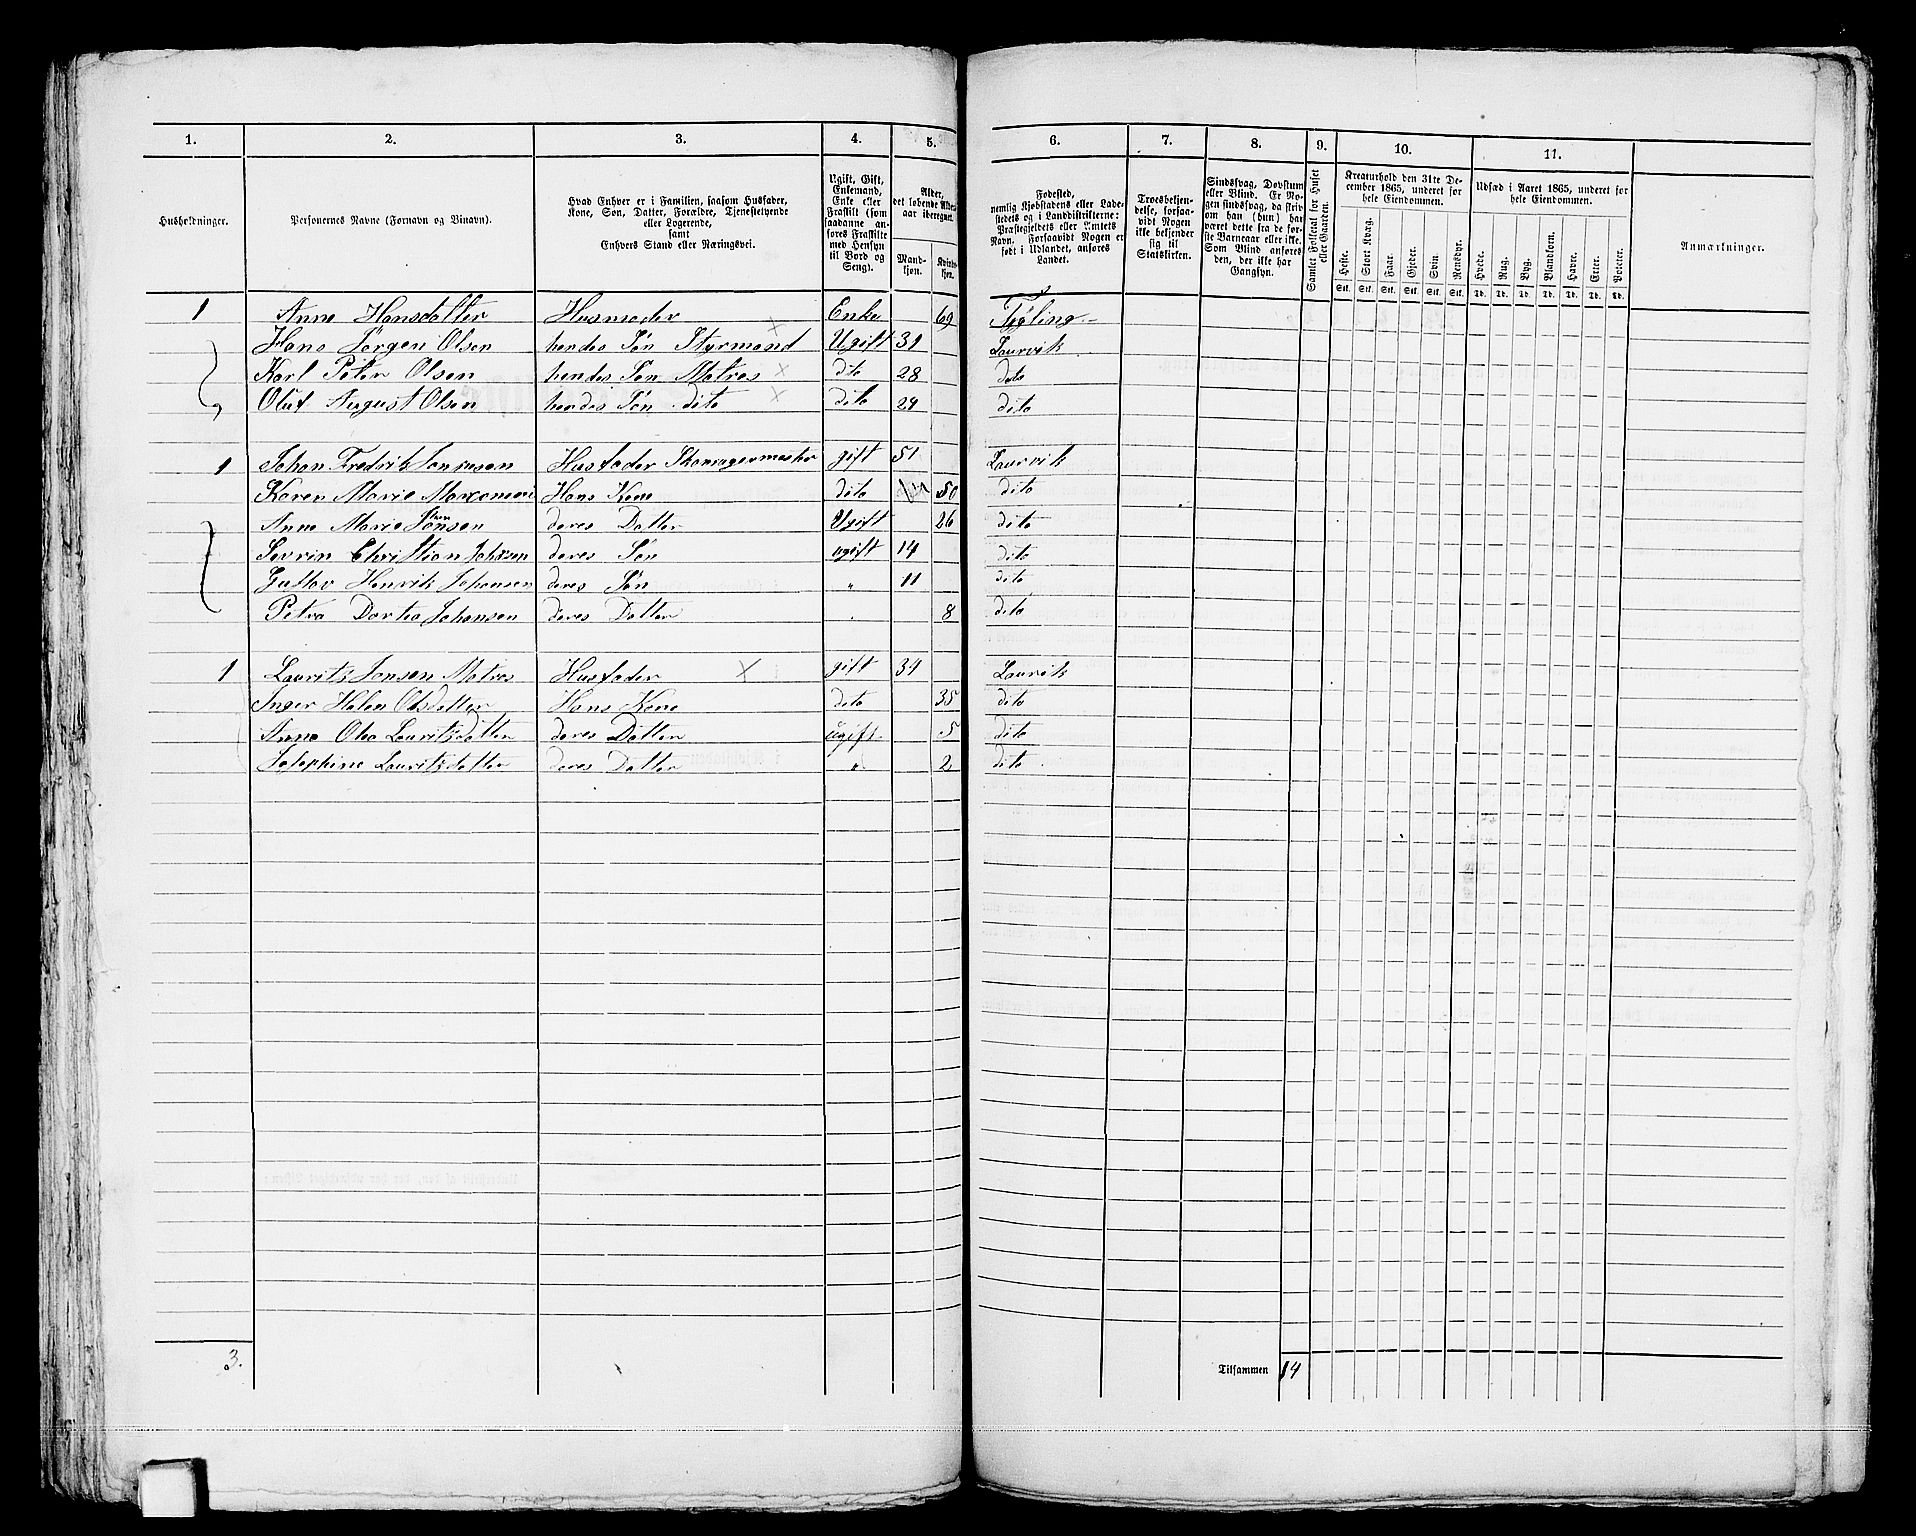 1. 2. 3. 4. 5. 6. 7. 8. 9. 10. 11.
Husholdninger.
Personernes Navne (Fornavn og Binavn).
Hvad Enhver er i Familien, saasom Husfader,
Kone, Søn, Datter, Forældre, Tjenestetyende
eller Logerende,
samt
Enhvers Stand eller Næringsvei.
Ugift, Gift,
Enkemand,
Enke eller
Fraskilt (som
saadanne an-
føres Fraskilte
med Hensyn
til Bord og
Seng).
Alder,
det løbende Alders-
aar iberegnet.
Mand-
kjøn.
Kvinde-
kjøn.
Fødested,
nemlig Kjøbstadens eller Lade-
stedets og i Landdistrikterne:
Præstegjeldets eller Amtets
Navn. Forsaavidt Nogen er
født i Udlandet, anføres
Landet.
Troesbekjen-
delse, forsaa-
vidt Nogen
ikke bekjender
sig til
Statskirken.
Sindssvag, Døvstum
eller Blind. Er No-
gen sindssvag, da skriv
om han (hun) har
været dette fra de før-
ste Barneaar eller ikke.
Som Blind anføres
den, der ikke har
Gangsyn.
Samlet Folketal for Huset
eller Gaarden.
Kreaturhold den 31te De-
cember 1865, underet for
hele Eiendommen.
Heste. Stort Kvæg. Faar. Gjeder. Svin. Rensdyr.
Stk. Stk. Stk. Stk. Stk. Stk.
Udsæd i Aaret 1865, underet for
hele Eiendommen.
Hvede. Rug. Byg. Blandkorn. Havre. Erter. Poteter.
Td. Td. Td. Td. Td. Td. Td.
Anmærkninger.
1 Anne Hansdatter Husmoder Enke 69 Tjøling
Hans Jørgen Olsen hendes Søn Styrmand Ugift 31 Laurvik
Karl Peter Olsen hendes Søn Matros dito 28 dito
Oluf August Olsen hendes Søn dito dito 24 dito
1 Johan Fredrik Husfader Skomagermester gift 51 Laurvik
Karen Marie Hans Kone dito 50 dito
Anne Marie deres Datter Ugift 26 dito
Sevrin Christian Johnsen deres Søn ugift 14 dito
Gustav Henrik Johansen deres Søn " 11 dito
Petra Dortea Johansen deres Datter " 8 dito
1 Lauritz Jonsen Matros Husfader gift 34 Laurvik
Inger Helen Olsdatter Hans Kone dito 35 dito
Anne Olea Lauritzdatter deres Datter ugift 5 dito
Josephine Lauritzdatter deres Datter " 2 dito
3.
Tilsammen 14